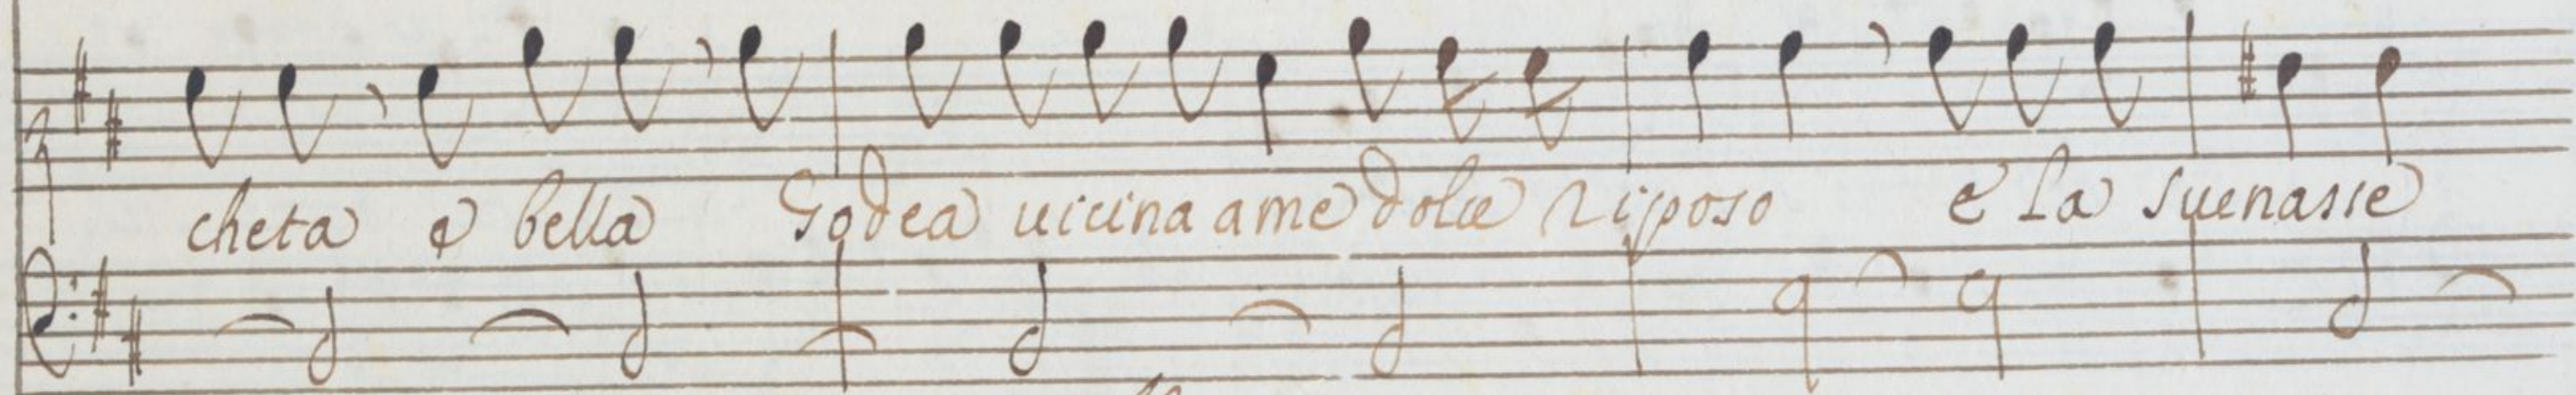 cheta e bella Godea uicina a me dolce riposo e la suenasse